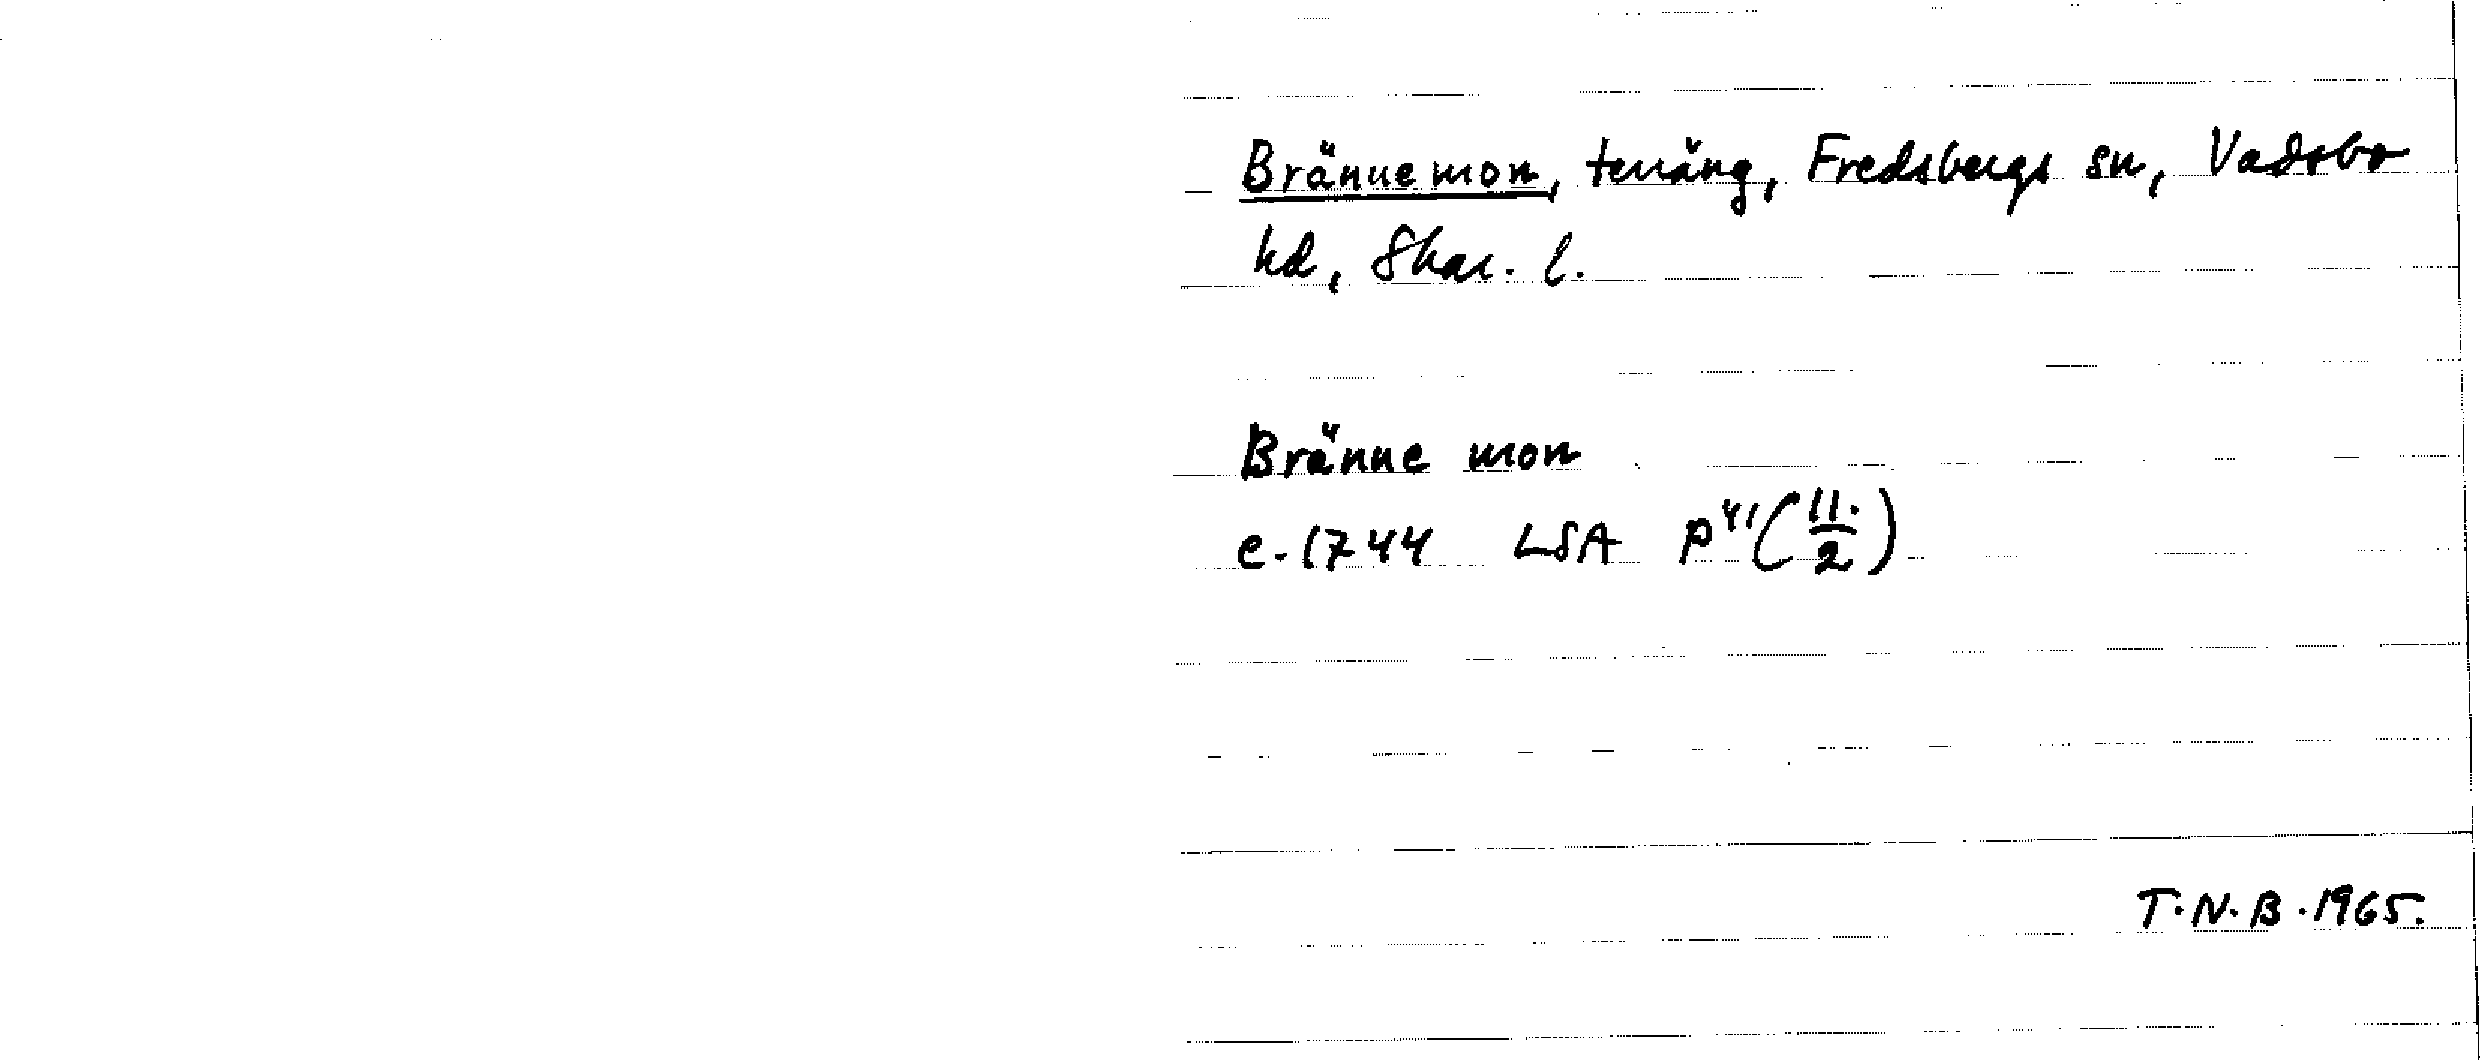 Brännemon, terräng, Fredsbergs sn, Vadsbo
hd, Skar. l.
Bränne mon
e. 1744 LSA P41(11:/2)
T.N.B. 1965.